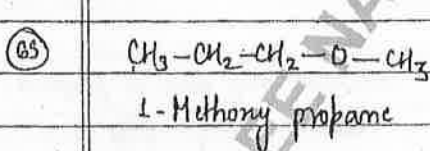 65 CH₃-CH₂-CH₂-O-CH₃
1-Methoxy propane